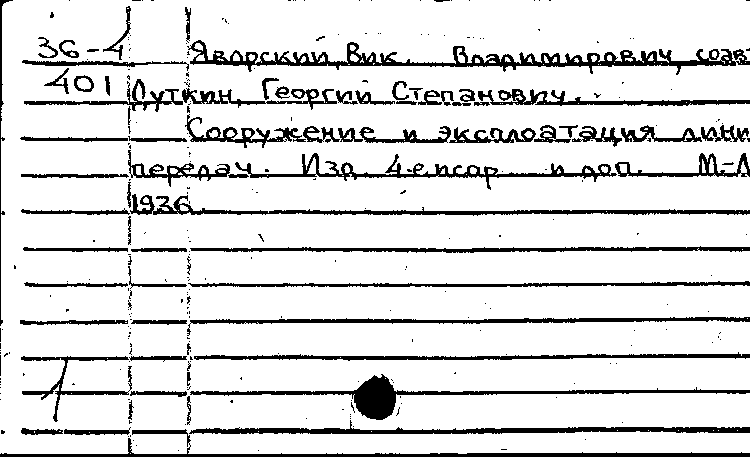 36-4 Яворский, Вик. Владимирович, соав
401 Дуткин, Георгий Степанович.
Сооружение и эксплоатация лини
передач. Изд. 4-е испр. и доп. М.-Л
1936.
1